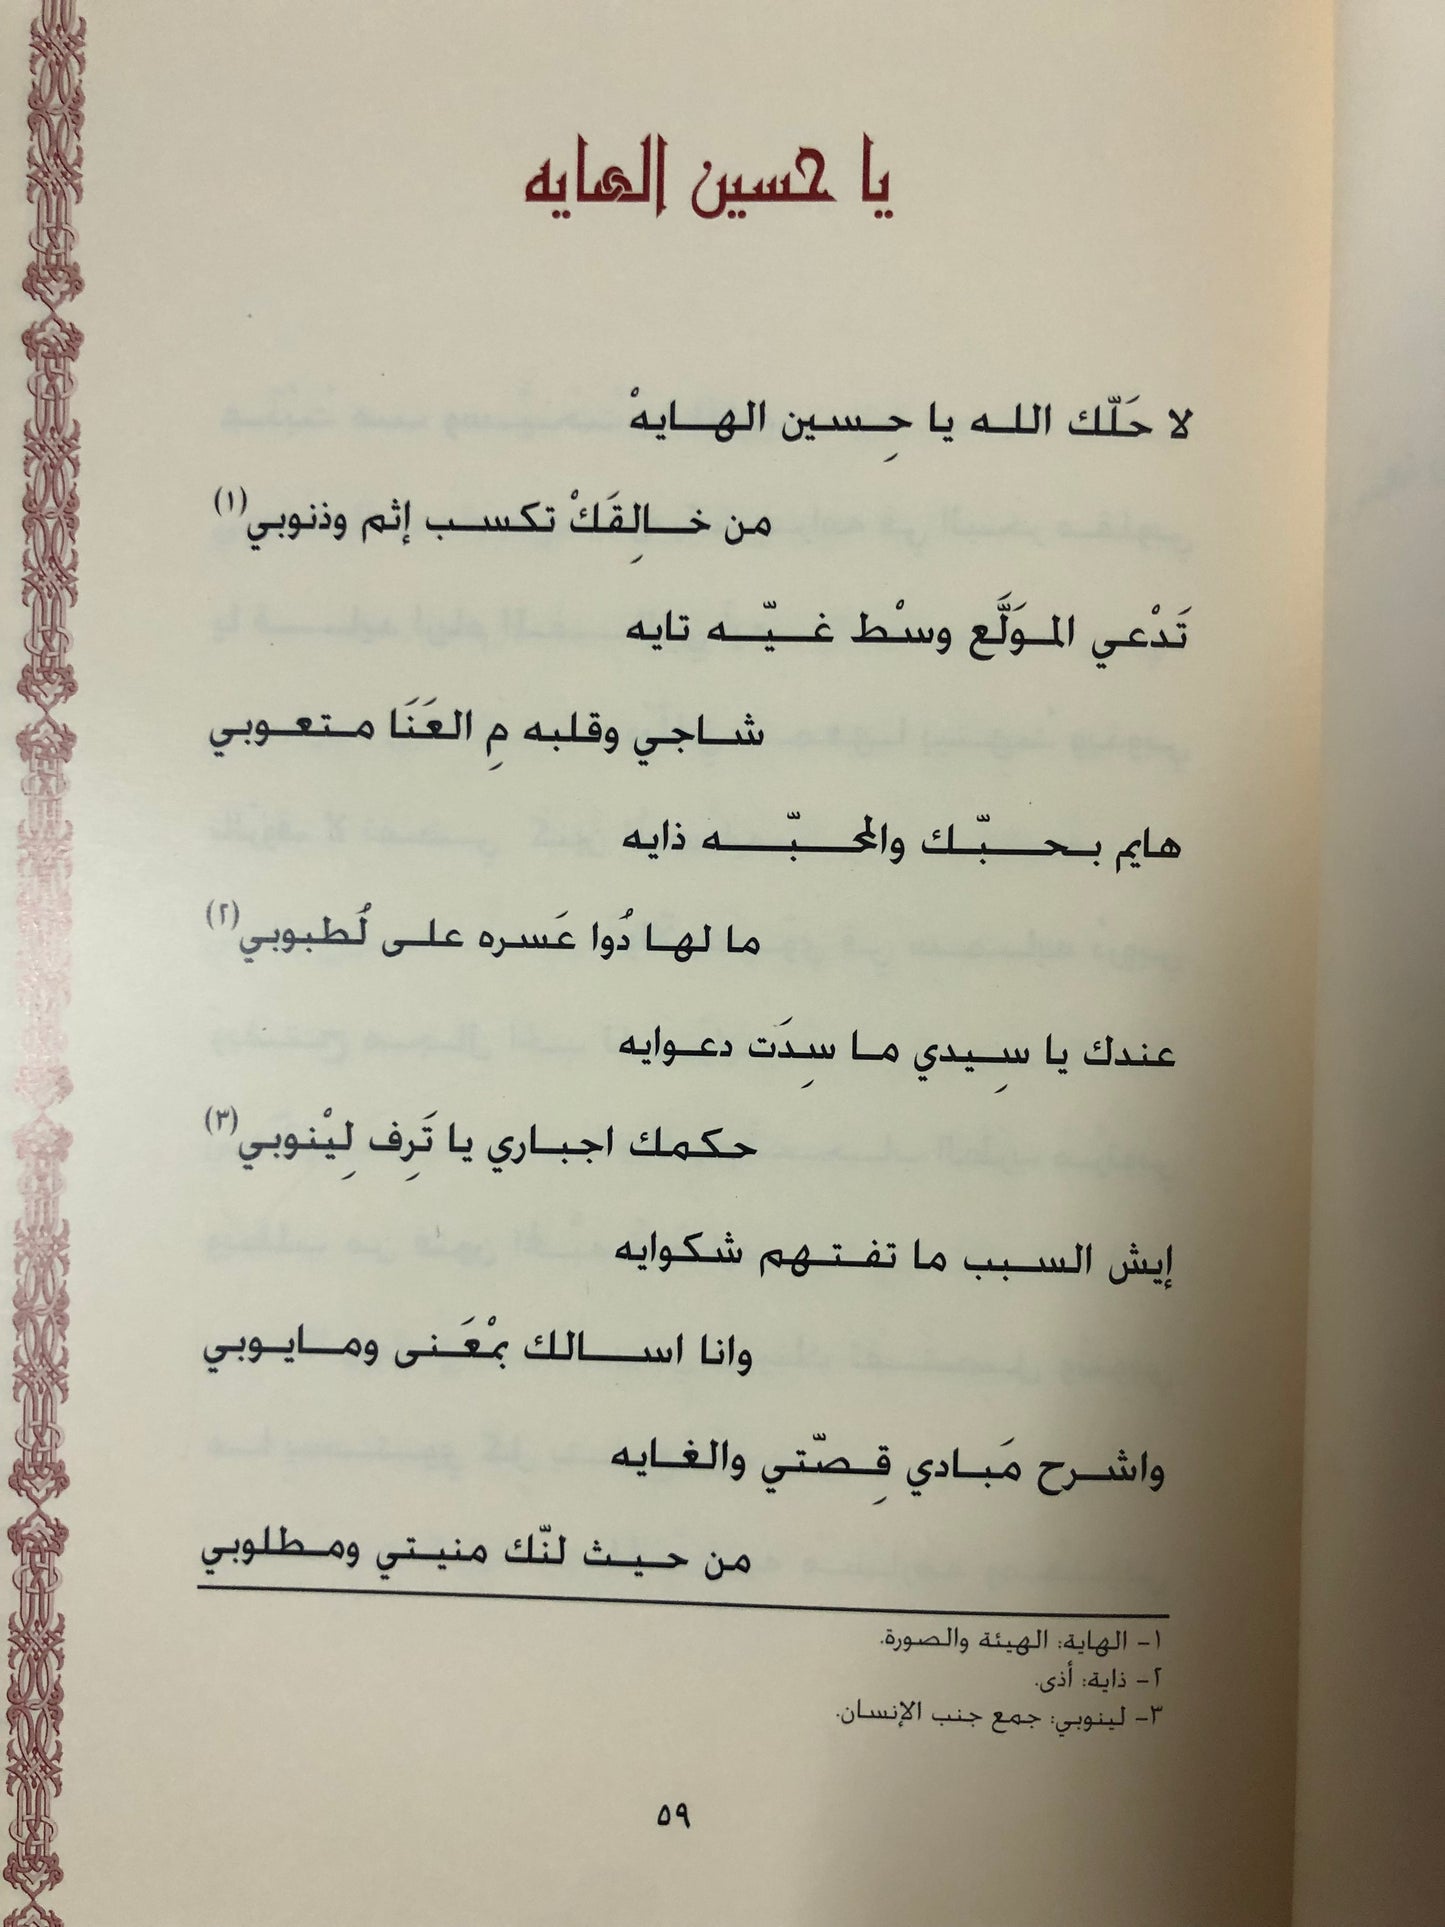 يا حسين الهايه
لا حَلّك الله يا حِسين الهايهْ
من خالِقَكْ تكسب إثم وذنوبي(١)
تَدْعي المولَّع وسْط غيّه تايه
شاجي وقلبه مِ العَنَا متعوبي
هايم بحبّك والمحبّه ذايه
ما لها دُوا عَسره على لُطبوبي(٢)
عندك يا سِيدي ما سِدَت دعوايه
حكمك اجباري يا تَرِف لِيْنوبي(٣)
إيش السبب ما تفتهم شكوايه
وانا اسالك بمْعَنى ومايوبي
واشرح مَبادي قِصّتي والغايه
من حيث لنّك منيتي ومطلوبي
١- الهاية: الهيئة والصورة.
٢- ذاية: أذى.
٣- لينوبي: جمع جنب الإنسان.
٥٩